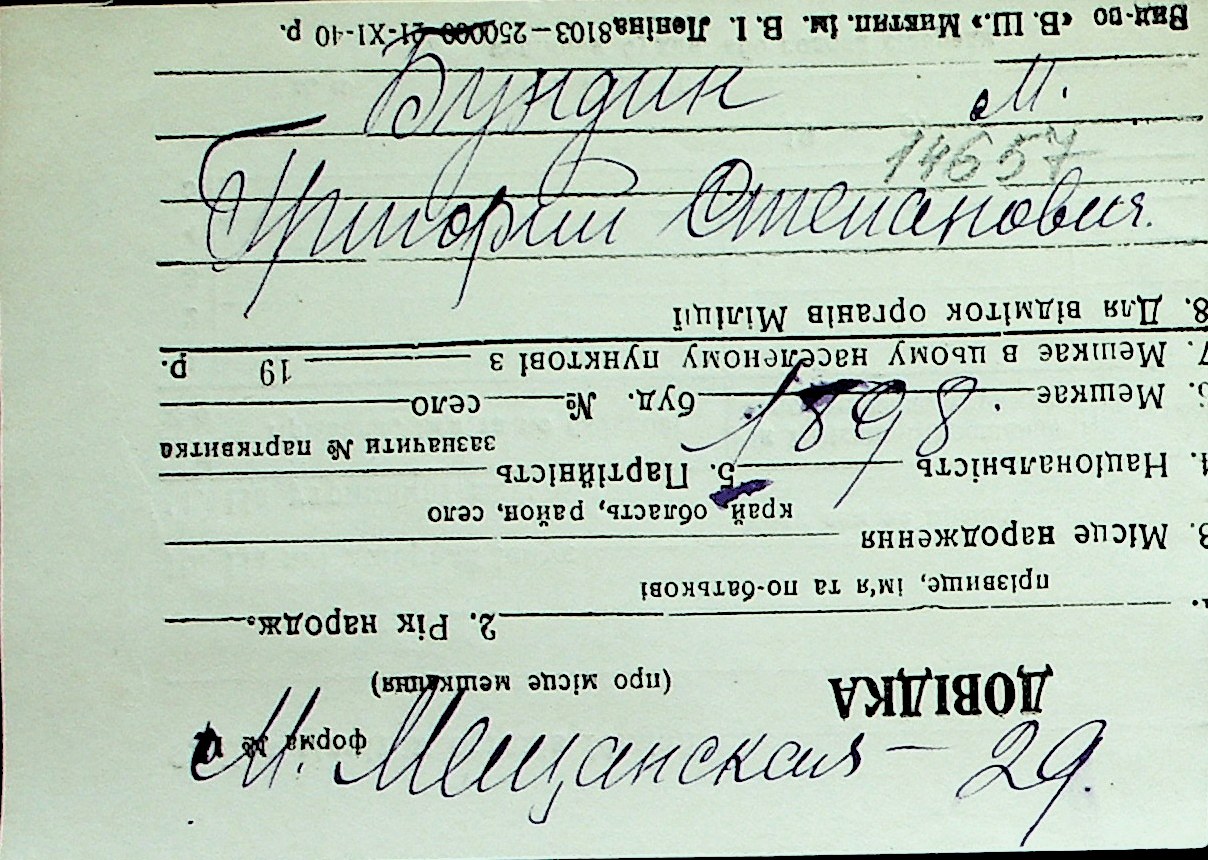 Бундин М.
14657
Григорий Степанович.
1898
М. Мещанская – 29.
форма №
ДОВІДКА
(про місце мешкання)
2. Рік народж.
прізвище, ім'я та по-батькові
3. Місце народження
край, область, район, село
4. Національність 5. Партійність
зазначити № партквитка
6. Мешкає буд. № село
7. Мешкає в цьому населеному пункті з 19 р.
8. Для відміток органів Міліції
Вид-во «В. Ш.» Миктип. ім. В. І. Леніна 8103—250000 21-XI-40 р.